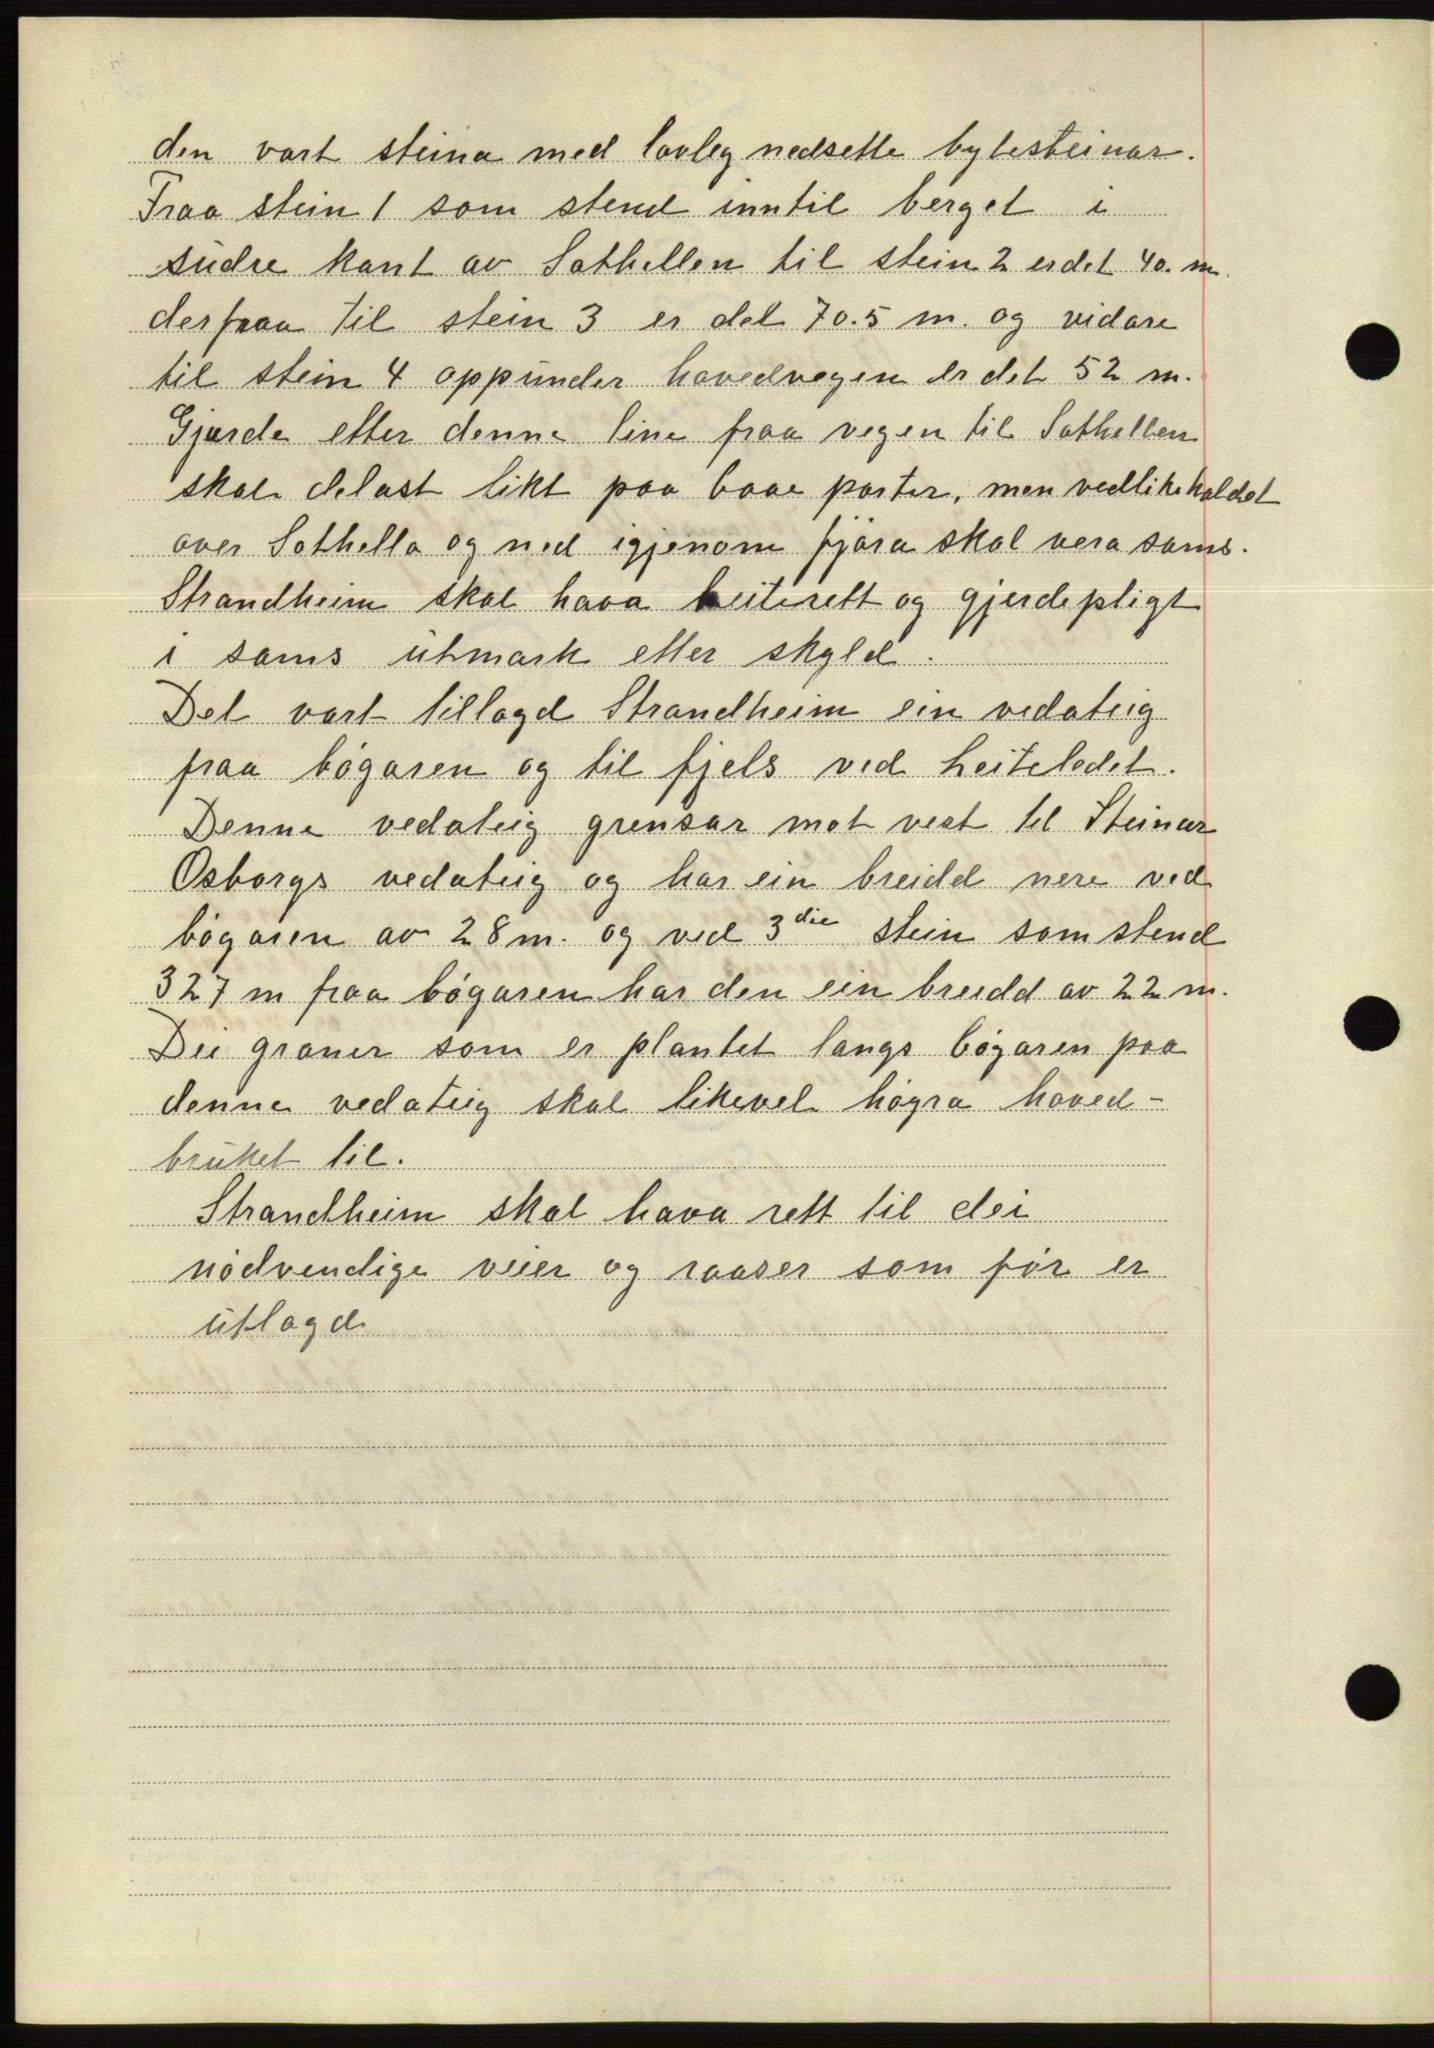 den vart steina med lovleg nedsette bytesteinar.
Fraa stein 1 som stend inntil berget i
sudre kant av Sathellen til stein 2 er det 40. m.
derfraa til stein 3 er det 70.5 m. og vidare
til stein 4 oppunder hovedvegen er det 52 m.
Gjærde etter denne line fraa vegen til Sathellen
skal delast likt paa baae parter, men vedlikehaldet
over Sathella og ned igjenom fjøra skal vera sams.
Strandheim skal hava beiterett og gjerdepligt
i sams utmark etter skyld.
Det vart tillagd Strandheim ein vedateig
fraa bøgaren og til fjels ved heiteledet.
Denne vedateig grensar mot vest til Steinar
Osborgs vedateig og har ein breidd nere ved
bøgaren av 28 m. og ved 3die stein som stend
327 m fraa bøgaren har den ein breidd av 22 m.
Dei graner som er plantet langs bøgaren paa
denne vedateig skal likevel høgra hoved-
bruket til.
Strandheim skal hava rett til dei
nødvendige veier og raaser som før er
utlagd